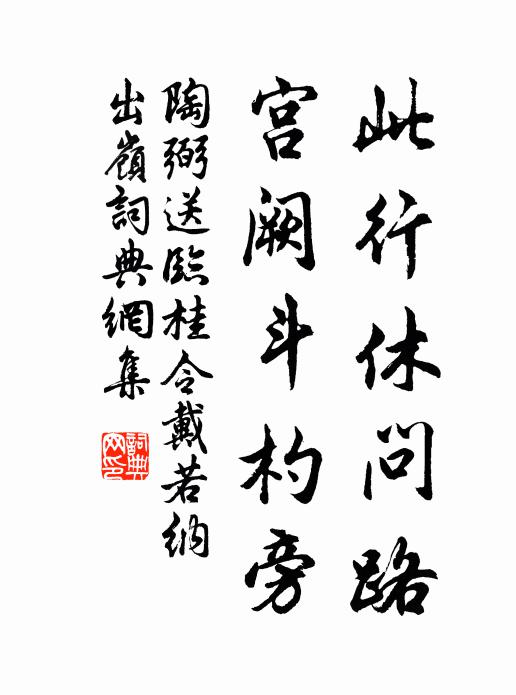 此行休问路
宫阙斗杓旁
陶弼送臨桂令戴若納
出嶺詞典網集
詞典網印